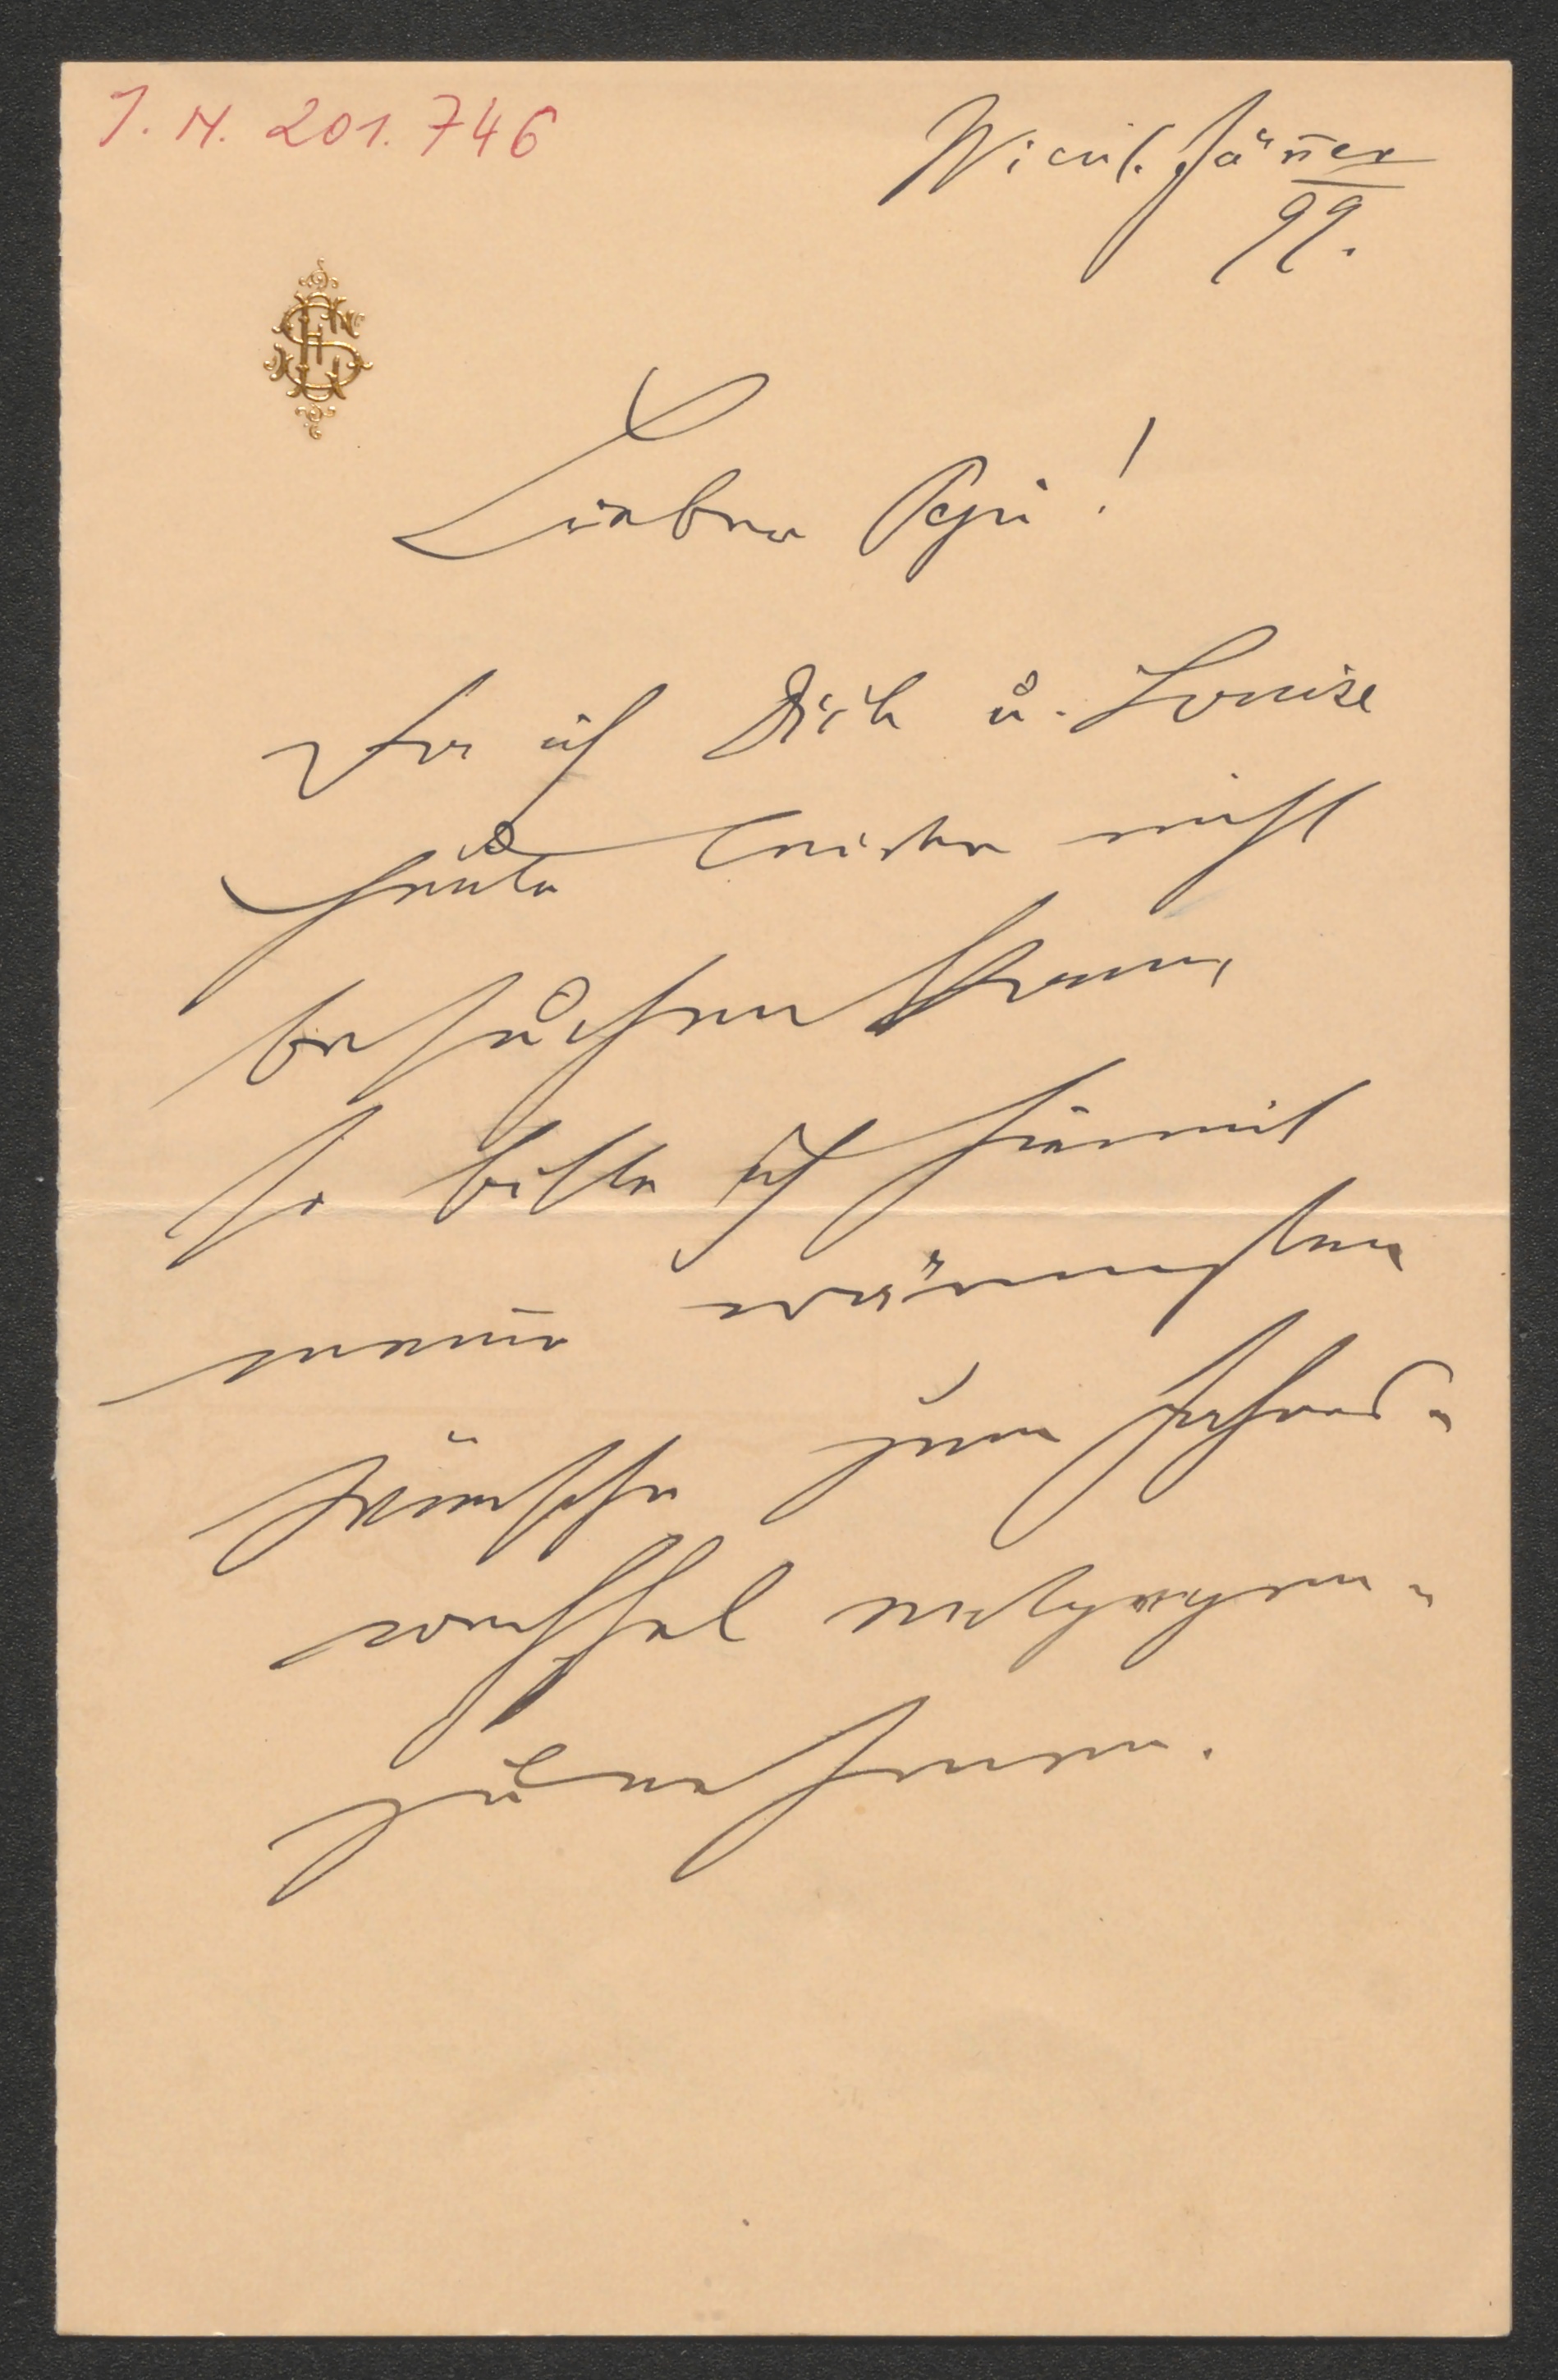 I. N. 201.746
Wien 1. Jänner
99.
Lieber Pepi!
Da ich Dich u. Louise
heute leider nicht
besuchen kann,
so bitte ich hiermit
meine wärmsten
Wünsche zum Jahres-
wechsel entgegen-
zunehmen.